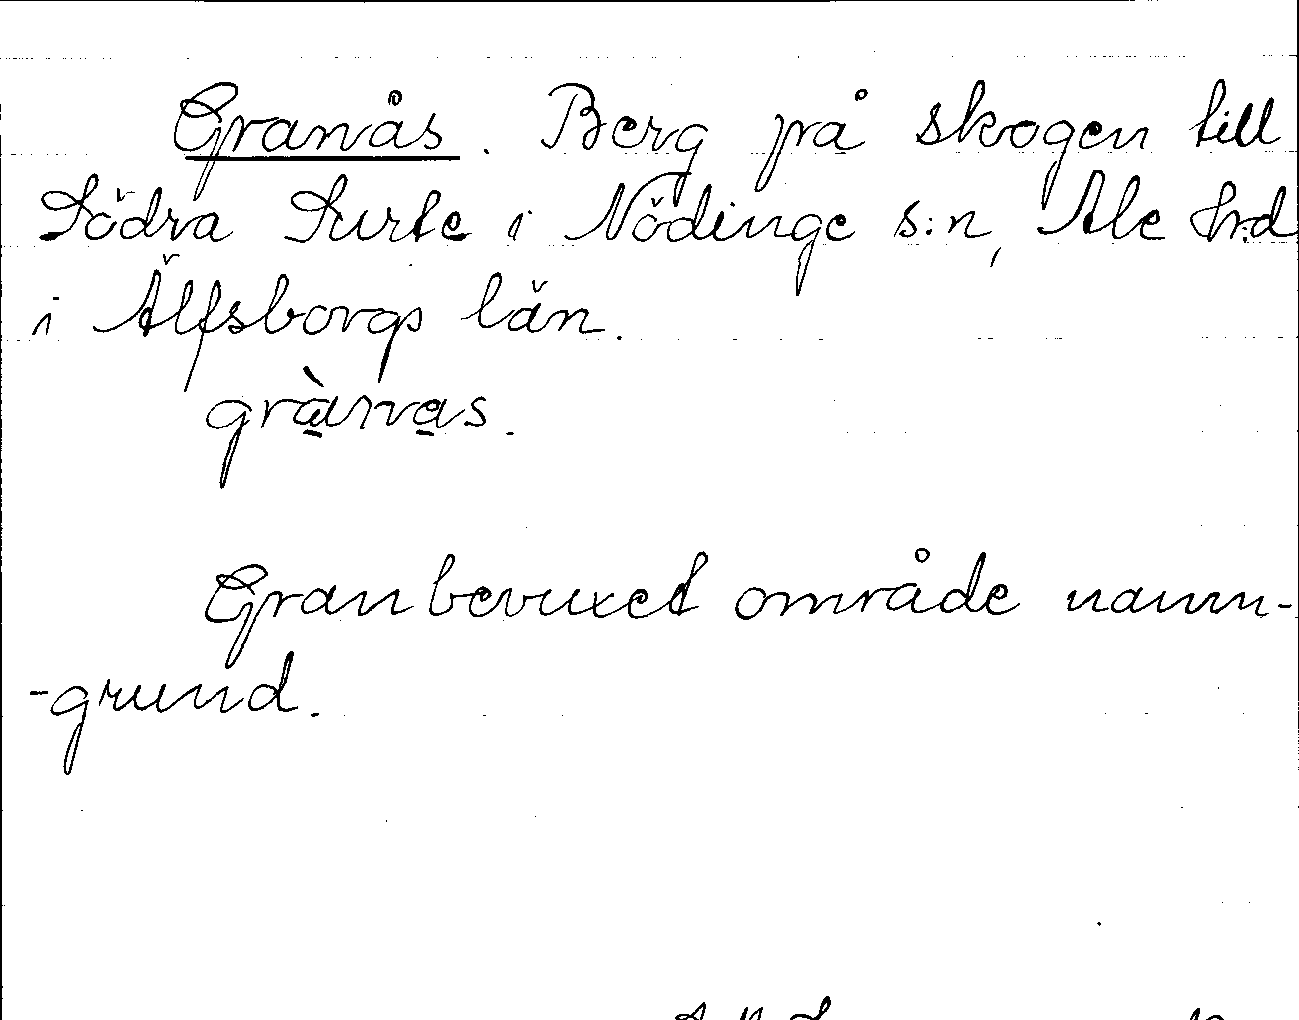 Granås. Berg på skogen till
Södra Surte i Nödinge s:n, Ale hrd
i Älfsborgs län.
grànas.
Granbevuxet område namn-
-grund.